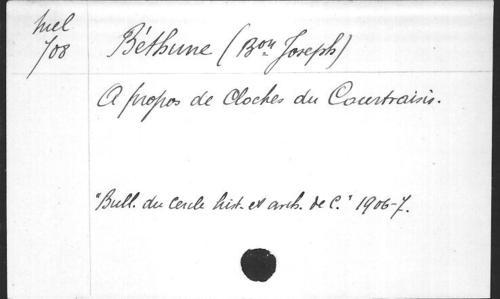 Mel
708
Béthune (Bon Joseph)
A propos de Cloches du Courtraisis.
"Bull. du Cercle hist. et arch. de C." 1906-7.